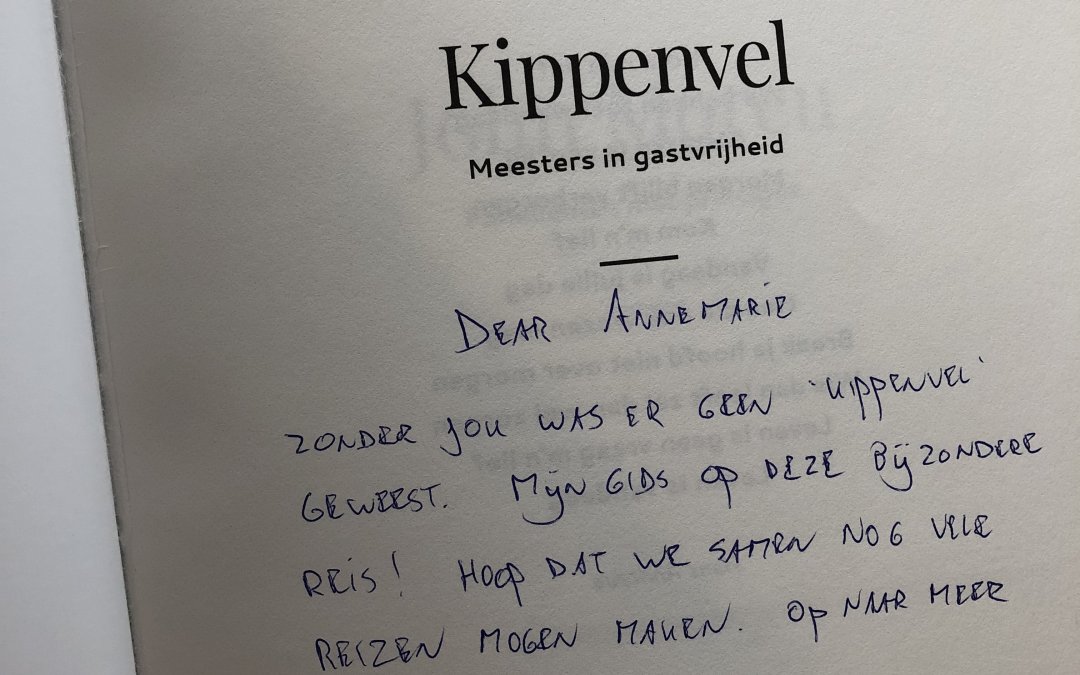 Kippenvel
Meesters in gastvrijheid
DEAR ANNEMARIE
ZONDER JOU WAS ER GEEN 'KIPPENVEL'
GEWEEST. MIJN GIDS OP DEZE BIJZONDERE
REIS! HOOP DAT WE SAMEN NOG VELE
REIZEN MOGEN MAKEN. OP NAAR MEER